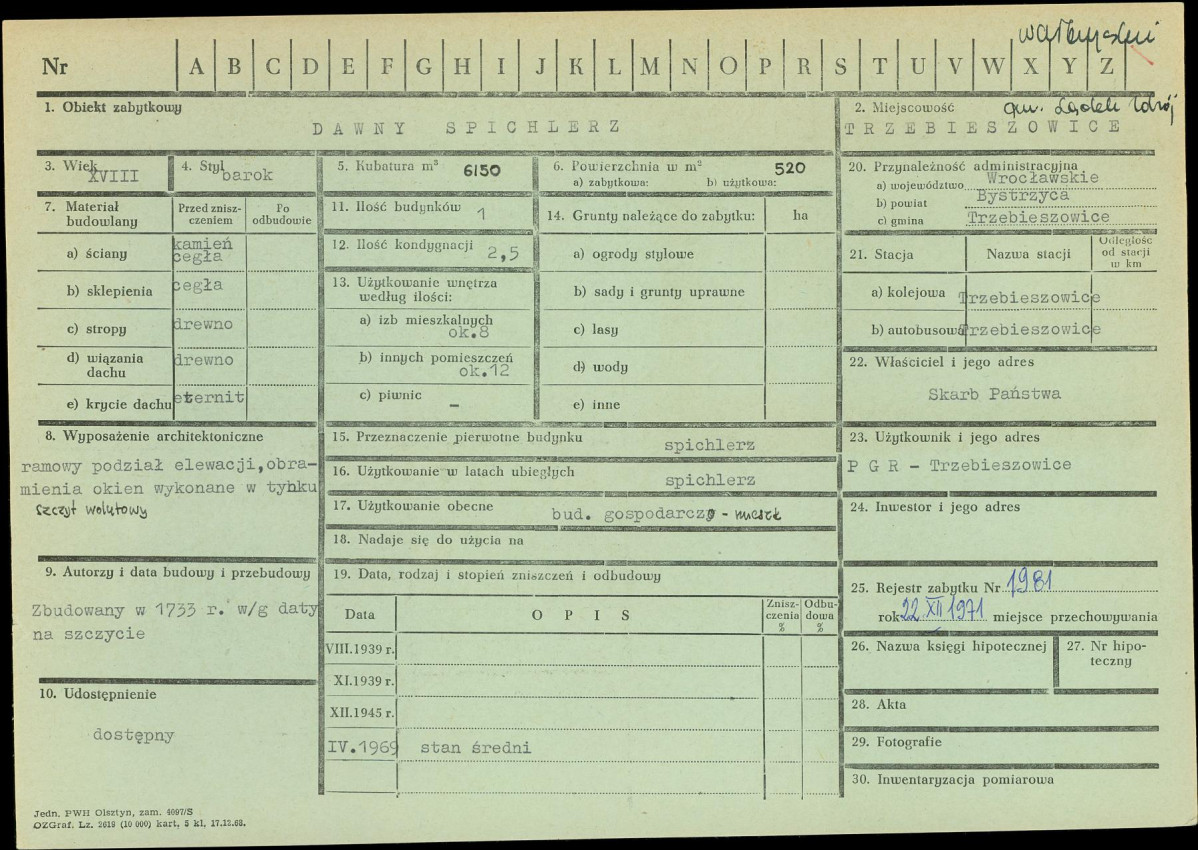 wałbrzyskie
Nr A B C D E F G H I J K L M N O P R S T U V W X Y Z
1. Obiekt zabytkowy
DAWNY SPICHLERZ
2. Miejscowość gm. Lądek Zdrój
TRZEBIESZOWICE
3. Wiek XVIII
4. Styl barok
5. Kubatura m³ 6150
6. Powierzchnia w m² 520
a) zabytkowa: b) użytkowa:
7. Materiał budowlany
Przed zniszczeniem
Po odbudowie
a) ściany kamień cegła
b) sklepienia cegła
c) stropy drewno
d) wiązania dachu drewno
e) krycie dachu eternit
8. Wyposażenie architektoniczne
ramowy podział elewacji, obra-
mienia okien wykonane w tynku
szczyt wolutowy
9. Autorzy i data budowy i przebudowy
Zbudowany w 1733 r. w/g daty
na szczycie
10. Udostępnienie
dostępny
11. Ilość budynków 1
12. Ilość kondygnacji 2,5
13. Użytkowanie wnętrza
według ilości:
a) izb mieszkalnych
ok.8
b) innych pomieszczeń
ok.12
c) piwnic –
14. Grunty należące do zabytku: ha
a) ogrody stylowe
b) sady i grunty uprawne
c) lasy
d) wody
e) inne
15. Przeznaczenie pierwotne budynku spichlerz
16. Użytkowanie w latach ubiegłych spichlerz
17. Użytkowanie obecne bud. gospodarczo - mieszk
18. Nadaje się do użycia na
19. Data, rodzaj i stopień zniszczeń i odbudowy
Data OPIS Znisz-czenia % Odbu-dowa %
VIII.1939 r.
XI.1939 r.
XII.1945 r.
IV.1969 stan średni
20. Przynależność administracyjna
a) województwo Wrocławskie
b) powiat Bystrzyca
c) gmina Trzebieszowice
21. Stacja Nazwa stacji Odległość od stacji w km
a) kolejowa Trzebieszowice
b) autobusowa Trzebieszowice
22. Właściciel i jego adres
Skarb Państwa
23. Użytkownik i jego adres
P G R - Trzebieszowice
24. Inwestor i jego adres
25. Rejestr zabytku Nr 1981
rok 22 XII 1971 miejsce przechowywania
26. Nazwa księgi hipotecznej
27. Nr hipo-
teczny
28. Akta
29. Fotografie
30. Inwentaryzacja pomiarowa
Jedn. PWH Olsztyn, zam. 4097/S
OZGraf. Lz. 2619 (10 000) kart, 5 kl, 17.12.68.